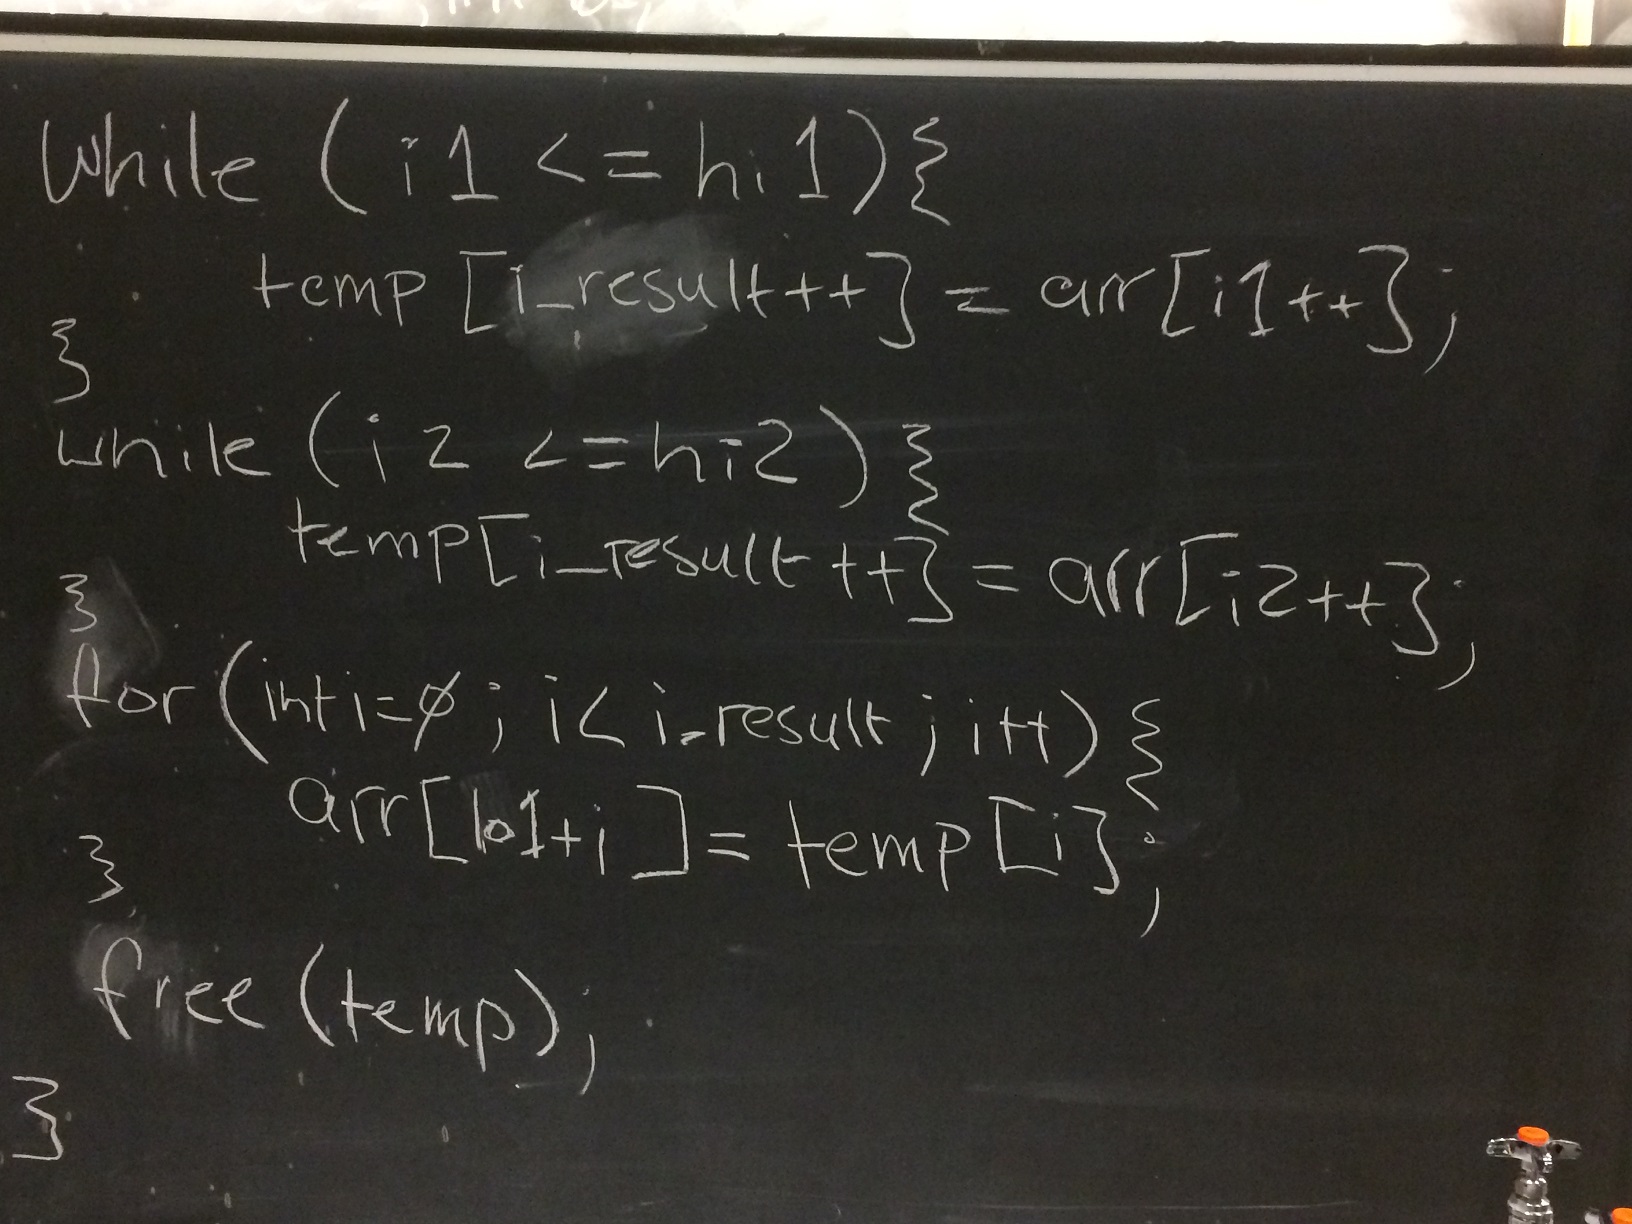 while (i1 <= hi1){
temp[i_result++] = arr[i1++];
}
while (i2 <= hi2){
temp[i_result++] = arr[i2++];
}
for (int i=0; i< i_result; i++){
arr[lo1+i] = temp[i];
}
free(temp);
}